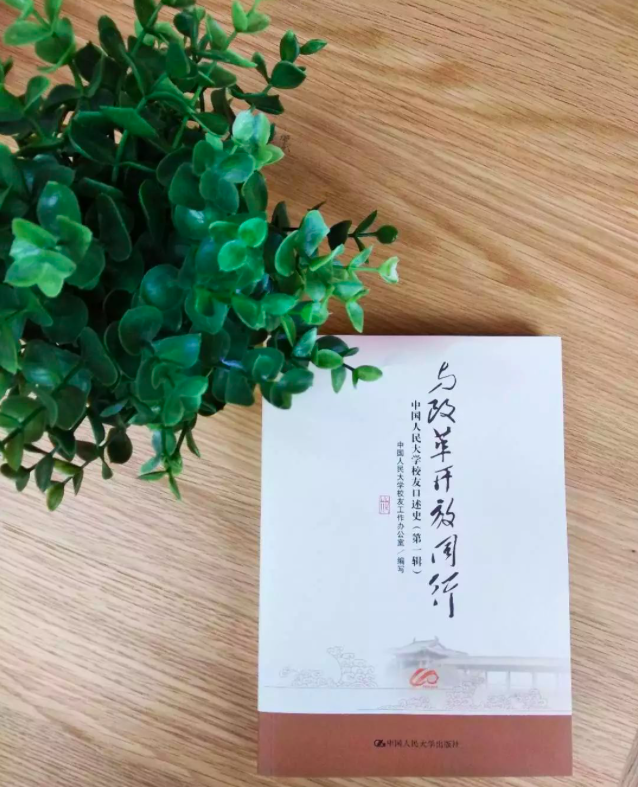 与改革开放同行
中国人民大学校友口述史(第一辑)
中国人民大学校友工作办公室/编写
中国人民大学出版社